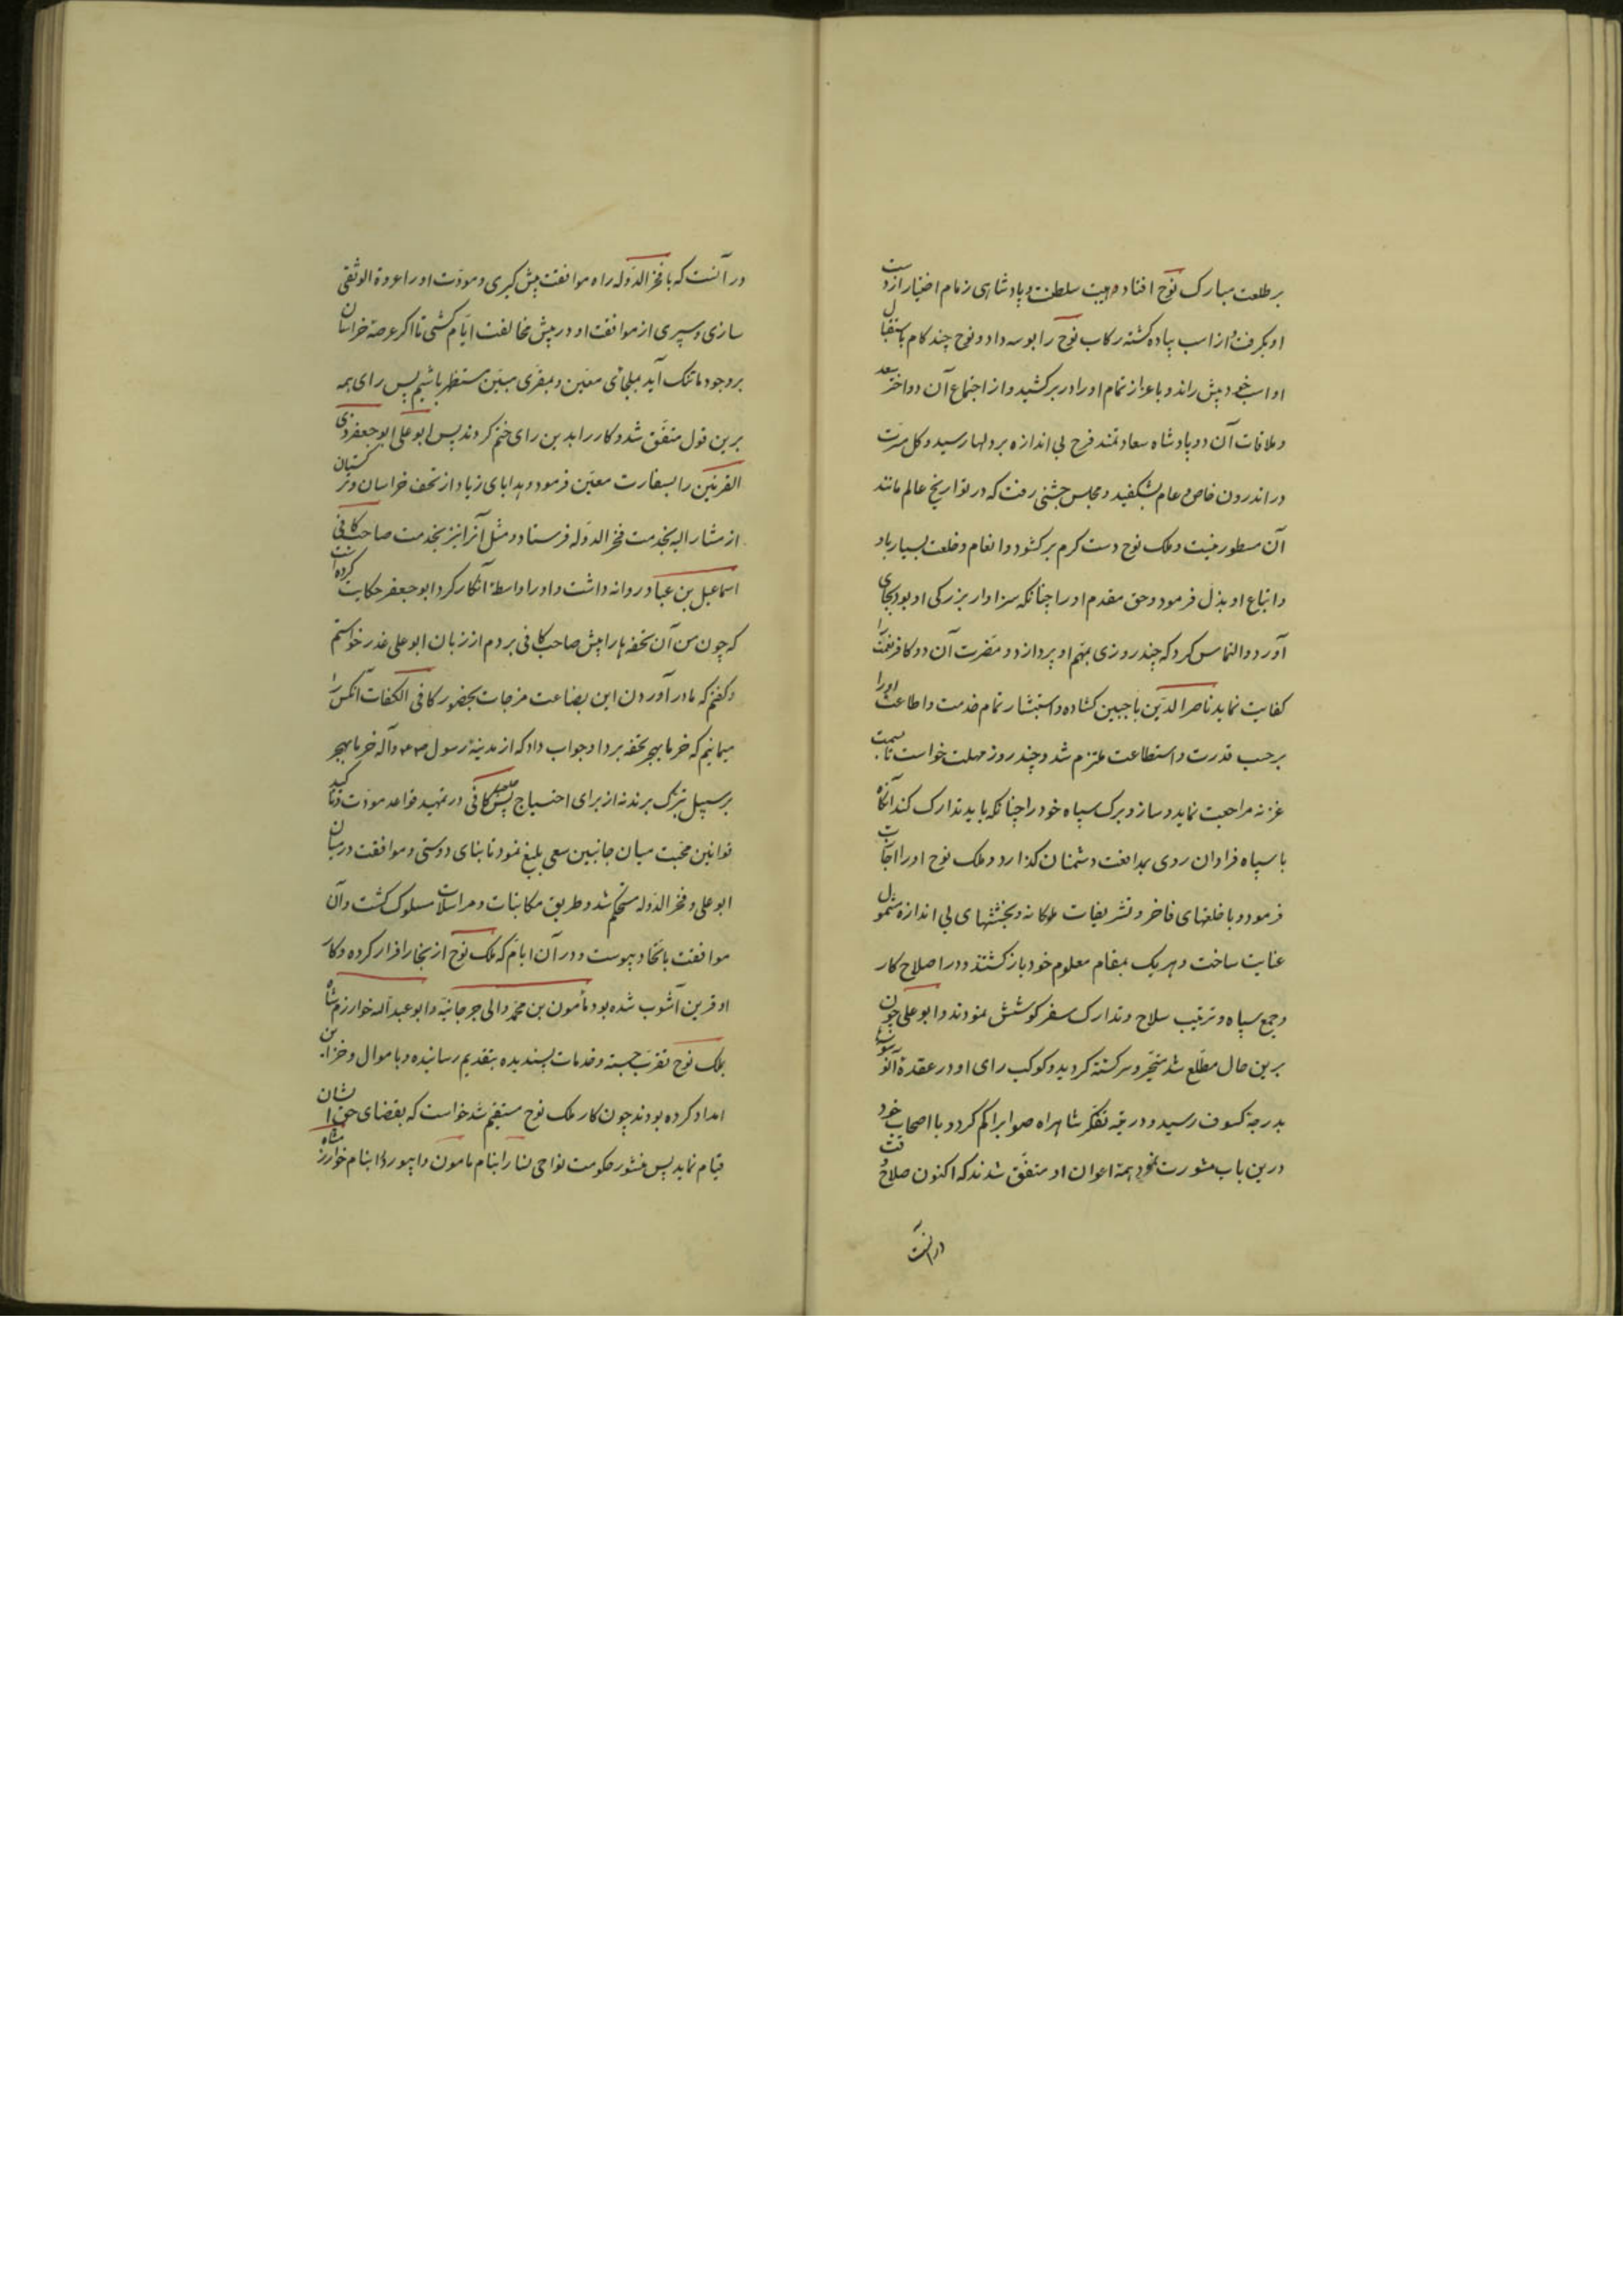 بر طلعت مبارک نوح افتاد و هیبت سلطنت و پادشاهی زمام اختیار از دست
او بگرفت و از اسب پیاده کشته رکاب نوح را بوسه داد و نوح چند کام باستقبال
او اسب خود پیش راند و باعزاز تمام او را در بر کشید و از اجتماع آن دو اختر سعد
و ملاقات آن دو پادشاه سعادتمند فرح بی اندازه بر دلها رسید و کل مسرّت
در اندرون خاص و عام بشکفید و مجلس جشنی رفت که در تواریخ عالم مانند
آن مسطور نیست و ملک نوح دست کرم بر کشود و انعام و خلعت بسیار باو
و اتباع او بذل فرمود و حق مقدم او را چنانکه سزاوار بزرکی او بود بجای
آورد و التماس کرد که چند روزی بمهّم او پردازد و مضرت آن دو کافر نعمت را
کفایت نماید ناصر الدّین با جبین کشاده و استبشار تمام خدمت و اطاعت او را
بر حسب قدرت و استطاعت ملتزم شد و چند روز مهلت خواست تا بسمت
غزنه مراجعت نماید و ساز و برک سپاه خود را چنانکه باید تدارک کند آنکاه
با سپاه فراوان روی بمدافعت دشمنان کذارد و ملک نوح او را اجابت
فرمود و با خلعتهای فاخر و تشریفات ملوکانه و بخششهای بی اندازه مشمول
عنایت ساخت و هر یک بمقام معلوم خود باز کشتند و در اصلاح کار
و جمع سپاه و ترتیب سلاح و تدارک سفر کوشش نمودند و ابو علی چون
برین حال مطّلع شد متحیّر و سرکشته کردید و کوکب رای او در عقدهٔ
بدرجهٔ کسوف رسید و در تیه تفکر شاهراه صواب را کم کرد و با اصحاب خود
درین باب مشورت نمود همهٔ اعوان او متفّق شدند که اکنون صلاح وقت
در آنست
در آنست که با فخر الدّوله راه موافقت پیش کیری و مودّت او را عروة الوثقی
سازی و سپری از موافقت او در پیش مخالفت ایّام کشی تا اکر عرصهٔ خراسان
بر وجود ما تنک آید بملجائی معیّن و بمفرّی مبیّن مستظهر باشیم پس رای همه
برین قول متفّق شد و کار را بدین رای ختم کردند پس ابو علی ابو جعفر ذی
القرنین را بسفارت معیّن فرمود و هدایای زیاد از تحف خراسان و ترکستان
از مشار الیه بخدمت فخر الدّوله فرستاد و مثل آنرا نیز بخدمت صاحب کافی
اسماعیل بن عباد روانه داشت و او را واسطهٔ آنکار کرد ابو جعفر حکایت کرده است
که چون من آن تحفه ها را پیش صاحب کافی بردم از زبان ابو علی عذر خواستم
و کفتم که ما در آوردن این بضاعت مزجات بحضور کافی الکفات آنکس را
میمانیم که خرما بهجر تحفه برد او جواب داد که از مدینهٔ رسول و آله خرما بهجر
بر سبیل تبرّک برند نه از برای احتیاج پس صاحب کافی در تمهید قواعد مودّت و تأکید
قوانین محبّت میان جانبین سعی بلیغ نمود تا بنای دوستی و موافقت در میان
ابو علی و فخر الدّوله مستحکم شد و طریق مکاتبات و مراسلات مسلوک کشت و آن
موافقت باتّحاد پیوست و در آن ایّام که ملک نوح از بخارا فرار کرده و کار
او قرین آشوب شده بود مأمون بن محمّد والی جرجانیّه و ابو عبد اله خوارزم شاه
بملک نوح تقرّب جسته و خدمات پسندیده بتقدیم رسانیده و باموال و خزائن
امداد کرده بودند چون کار ملک نوح مستقیم شد خواست که بقضای حق ایشان
قیام نماید پس منشور حکومت نواحی نسا را بنام مامون و ابیورد را بنام خوارزم شاه